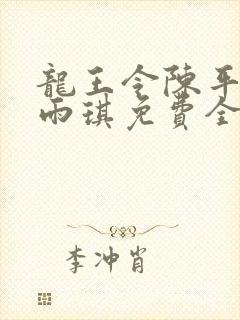 龍王令陳平
雨琪免費全
李冲肖